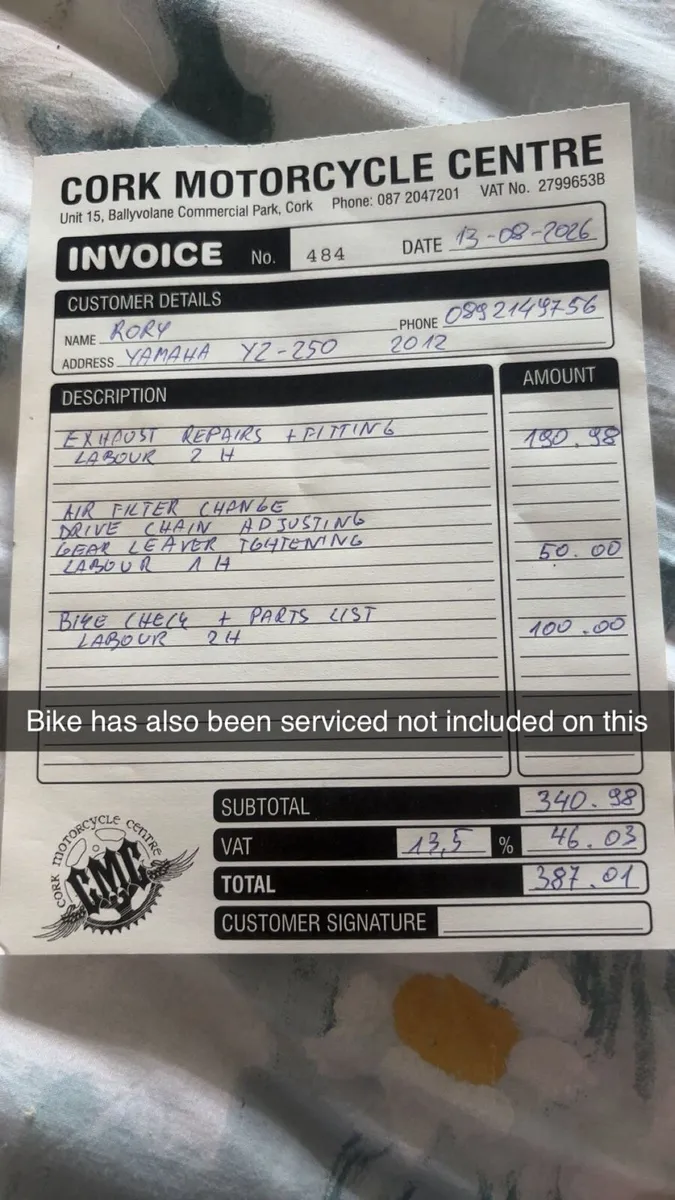 CORK MOTORCYCLE CENTRE
Unit 15, Ballyvolane Commercial Park, Cork Phone: 087 2047201 VAT No. 2799653B
INVOICE No. 484 DATE 13-08-2026
CUSTOMER DETAILS
NAME RORY PHONE 0892149756
ADDRESS YAMAHA YZ-250 2012
DESCRIPTION AMOUNT
EXHAUST REPAIRS + FITTING 190.98
LABOUR 2 H
AIR FILTER CHANGE
DRIVE CHAIN ADJUSTING
GEAR LEAVER TGHTENING 50.00
LABOUR 1 H
BIKE CHECK + PARTS LIST 100.00
LABOUR 2H
Bike has also been serviced not included on this
SUBTOTAL 340.98
VAT 13,5 % 46.03
TOTAL 387.01
CUSTOMER SIGNATURE
CORK MOTORCYCLE CENTRE
CMC